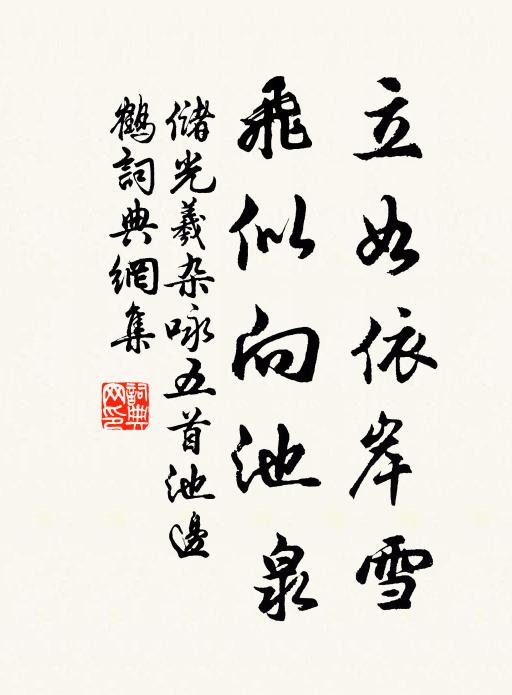 立如依岸雪
飛似向池泉
儲光羲杂咏五首池邊
鶴詞典網集
詞典
网印